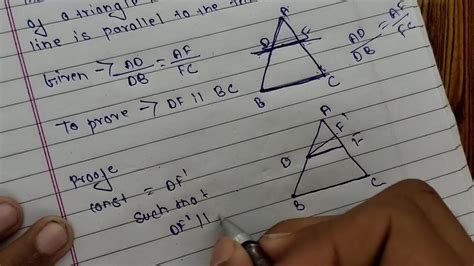 of a triangle
line is parallel to the
Given -> AD/DB = AF/FC
AD/DB = AF/FC
A
D F
B C
To prove -> DF || BC
Proofe
const = DF'
such that
DF' ||
A
F'
D F
B C